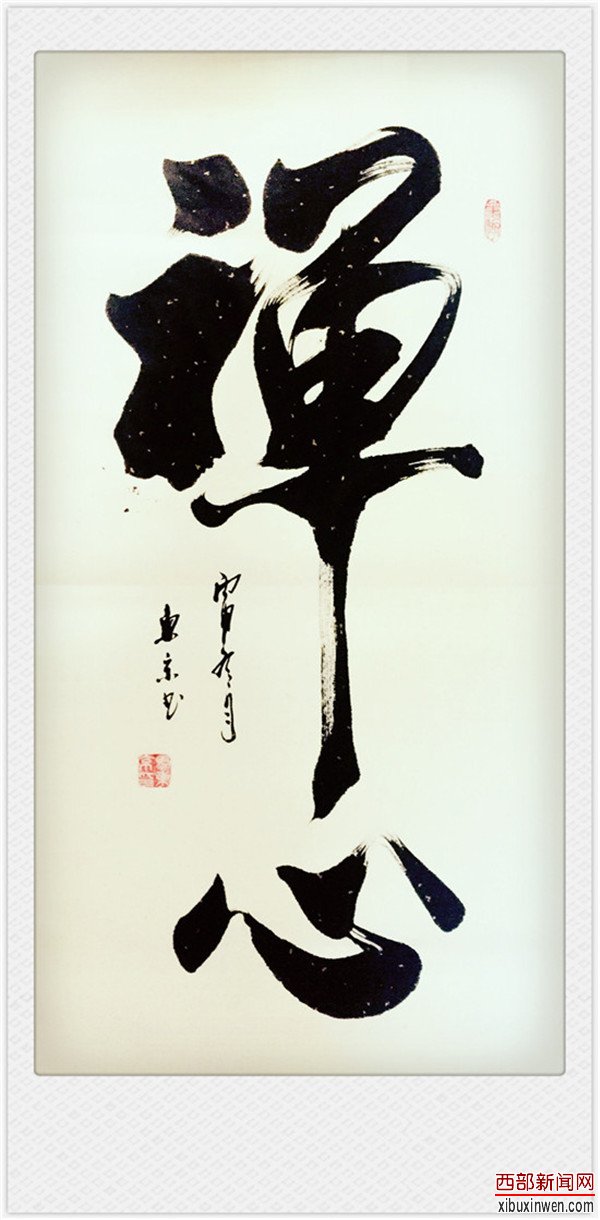 禅心
丙申冬月
惠京书
西部新闻网
xibuxinwen.com